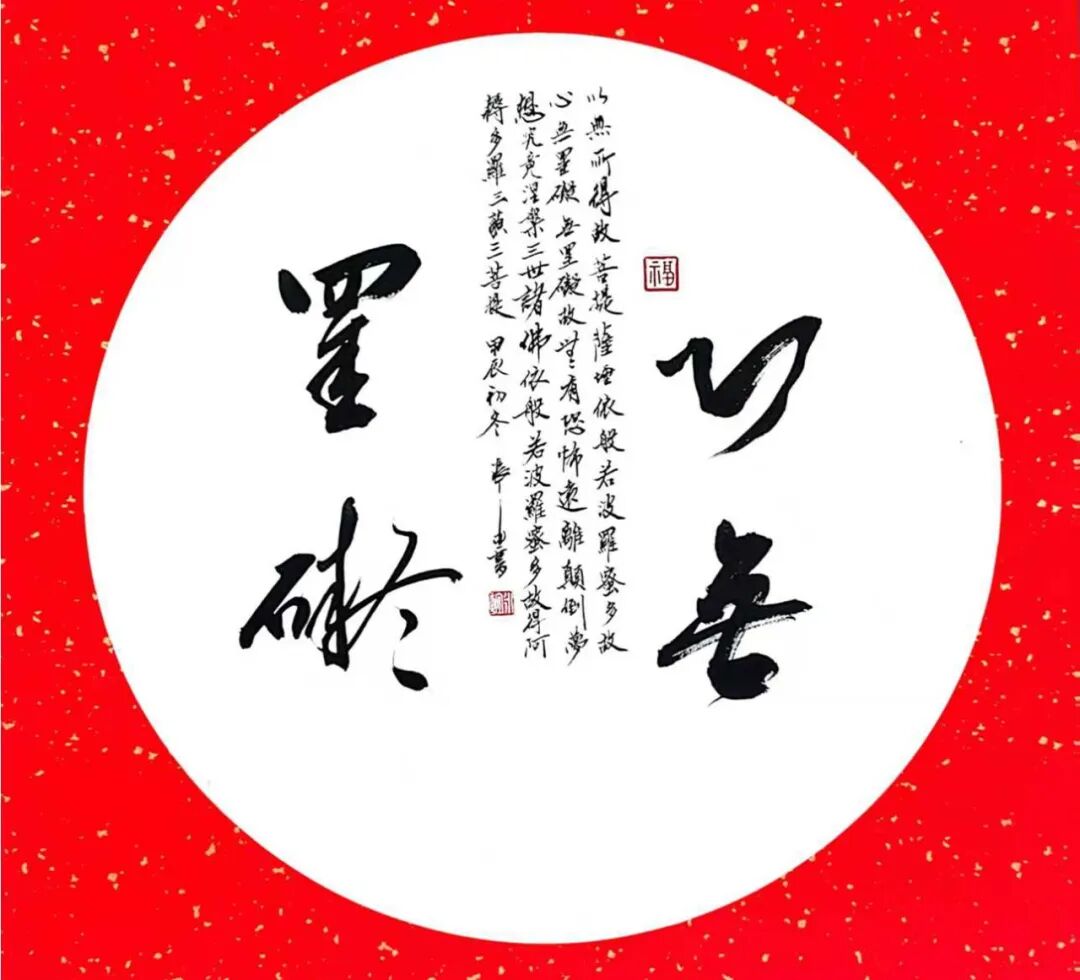 心無
福
以無所得故菩提薩埵依般若波羅蜜多故
心無罣礙無罣礙故無有恐怖遠離顛倒夢
想究竟涅槃三世諸佛依般若波羅蜜多故得阿
耨多羅三藐三菩提 甲辰初冬 書
罣礙